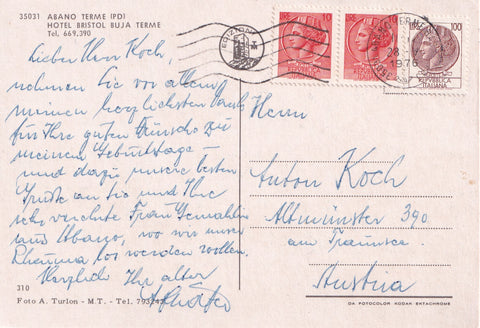 35031 ABANO TERME (PD)
HOTEL BRISTOL BUJA TERME
Tel. 669,390
Lieber Herr Koch,
nehmen Sie vor allem
meinen herzlichsten Dank
für Ihre guten Wünsche zu
meinem Geburtstage –
und dazu unsere besten
Grüße an Sie und Ihre
sehr verehrte Frau Gemahlin
aus Abano, wo wir unser
Rheuma los werden wollen.
Herzlich Ihr alter
310
Foto A. Turlon - M.T. - Tel. 793
EDIZIONI
10
100
1976
REPUBBLICA
ITALIANA
Herrn
Anton Koch
Altmünster 390
am Traunsee
Austria
DA FOTOCOLOR KODAK EKTACHROME